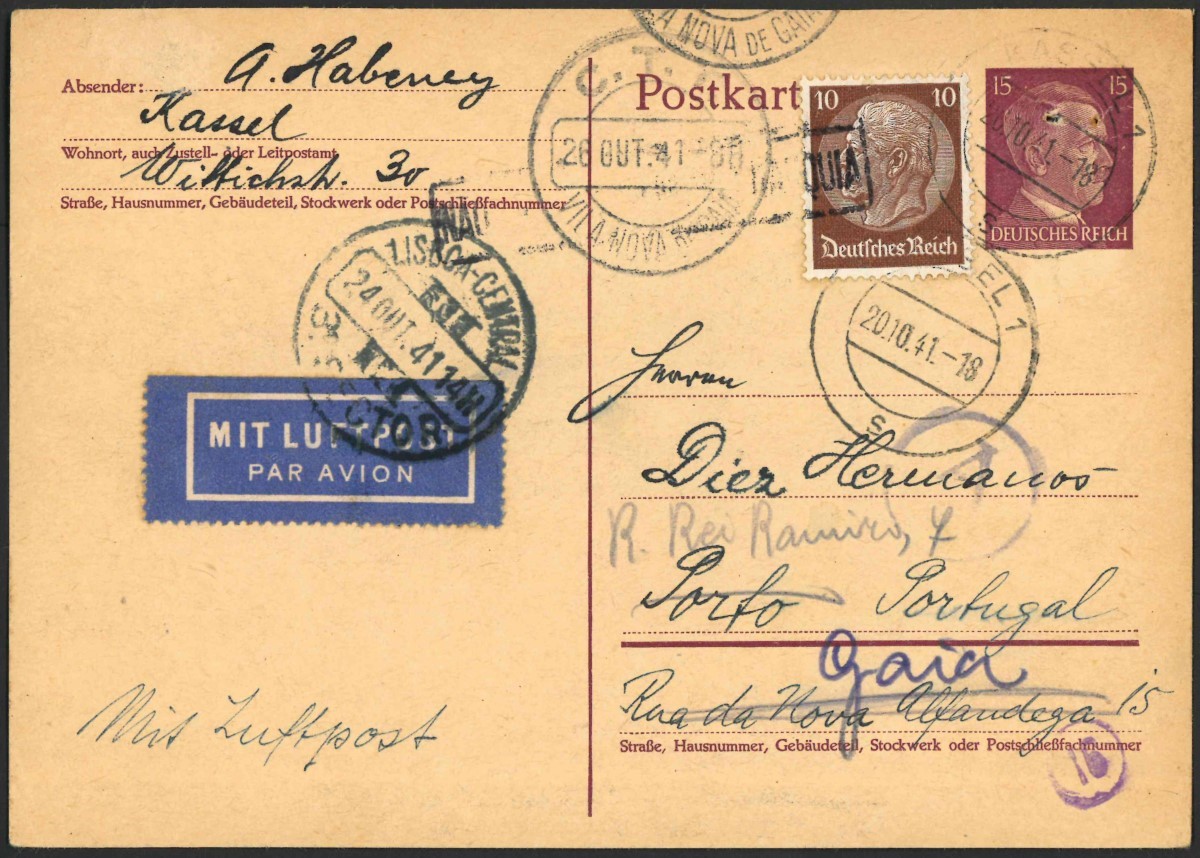 Absender: A. Habeney
Kassel
Wohnort, auch Zustell- oder Leitpostamt
Wittichstr. 30
Straße, Hausnummer, Gebäudeteil, Stockwerk oder Postschließfachnummer
A NOVA DE GAIA
C.T.
26 OUT. 41
VILA NOVA DE GAIA
Postkart
10 10
Deutsches Reich
15 15
DEUTSCHES REICH
KASSEL 1
20.10.41.-18
KASSEL 1
20.10.41.-18
S
LISBOA-CENTRAL
24 OUT. 41 14H
MIT LUFTPOST
PAR AVION
Herren
Diez Hermanos
R. Rei Ramiro, 7
Porto Portugal
Gaia
Rua da Nova Alfandega 15
Straße, Hausnummer, Gebäudeteil, Stockwerk oder Postschließfachnummer
Mit Luftpost
16